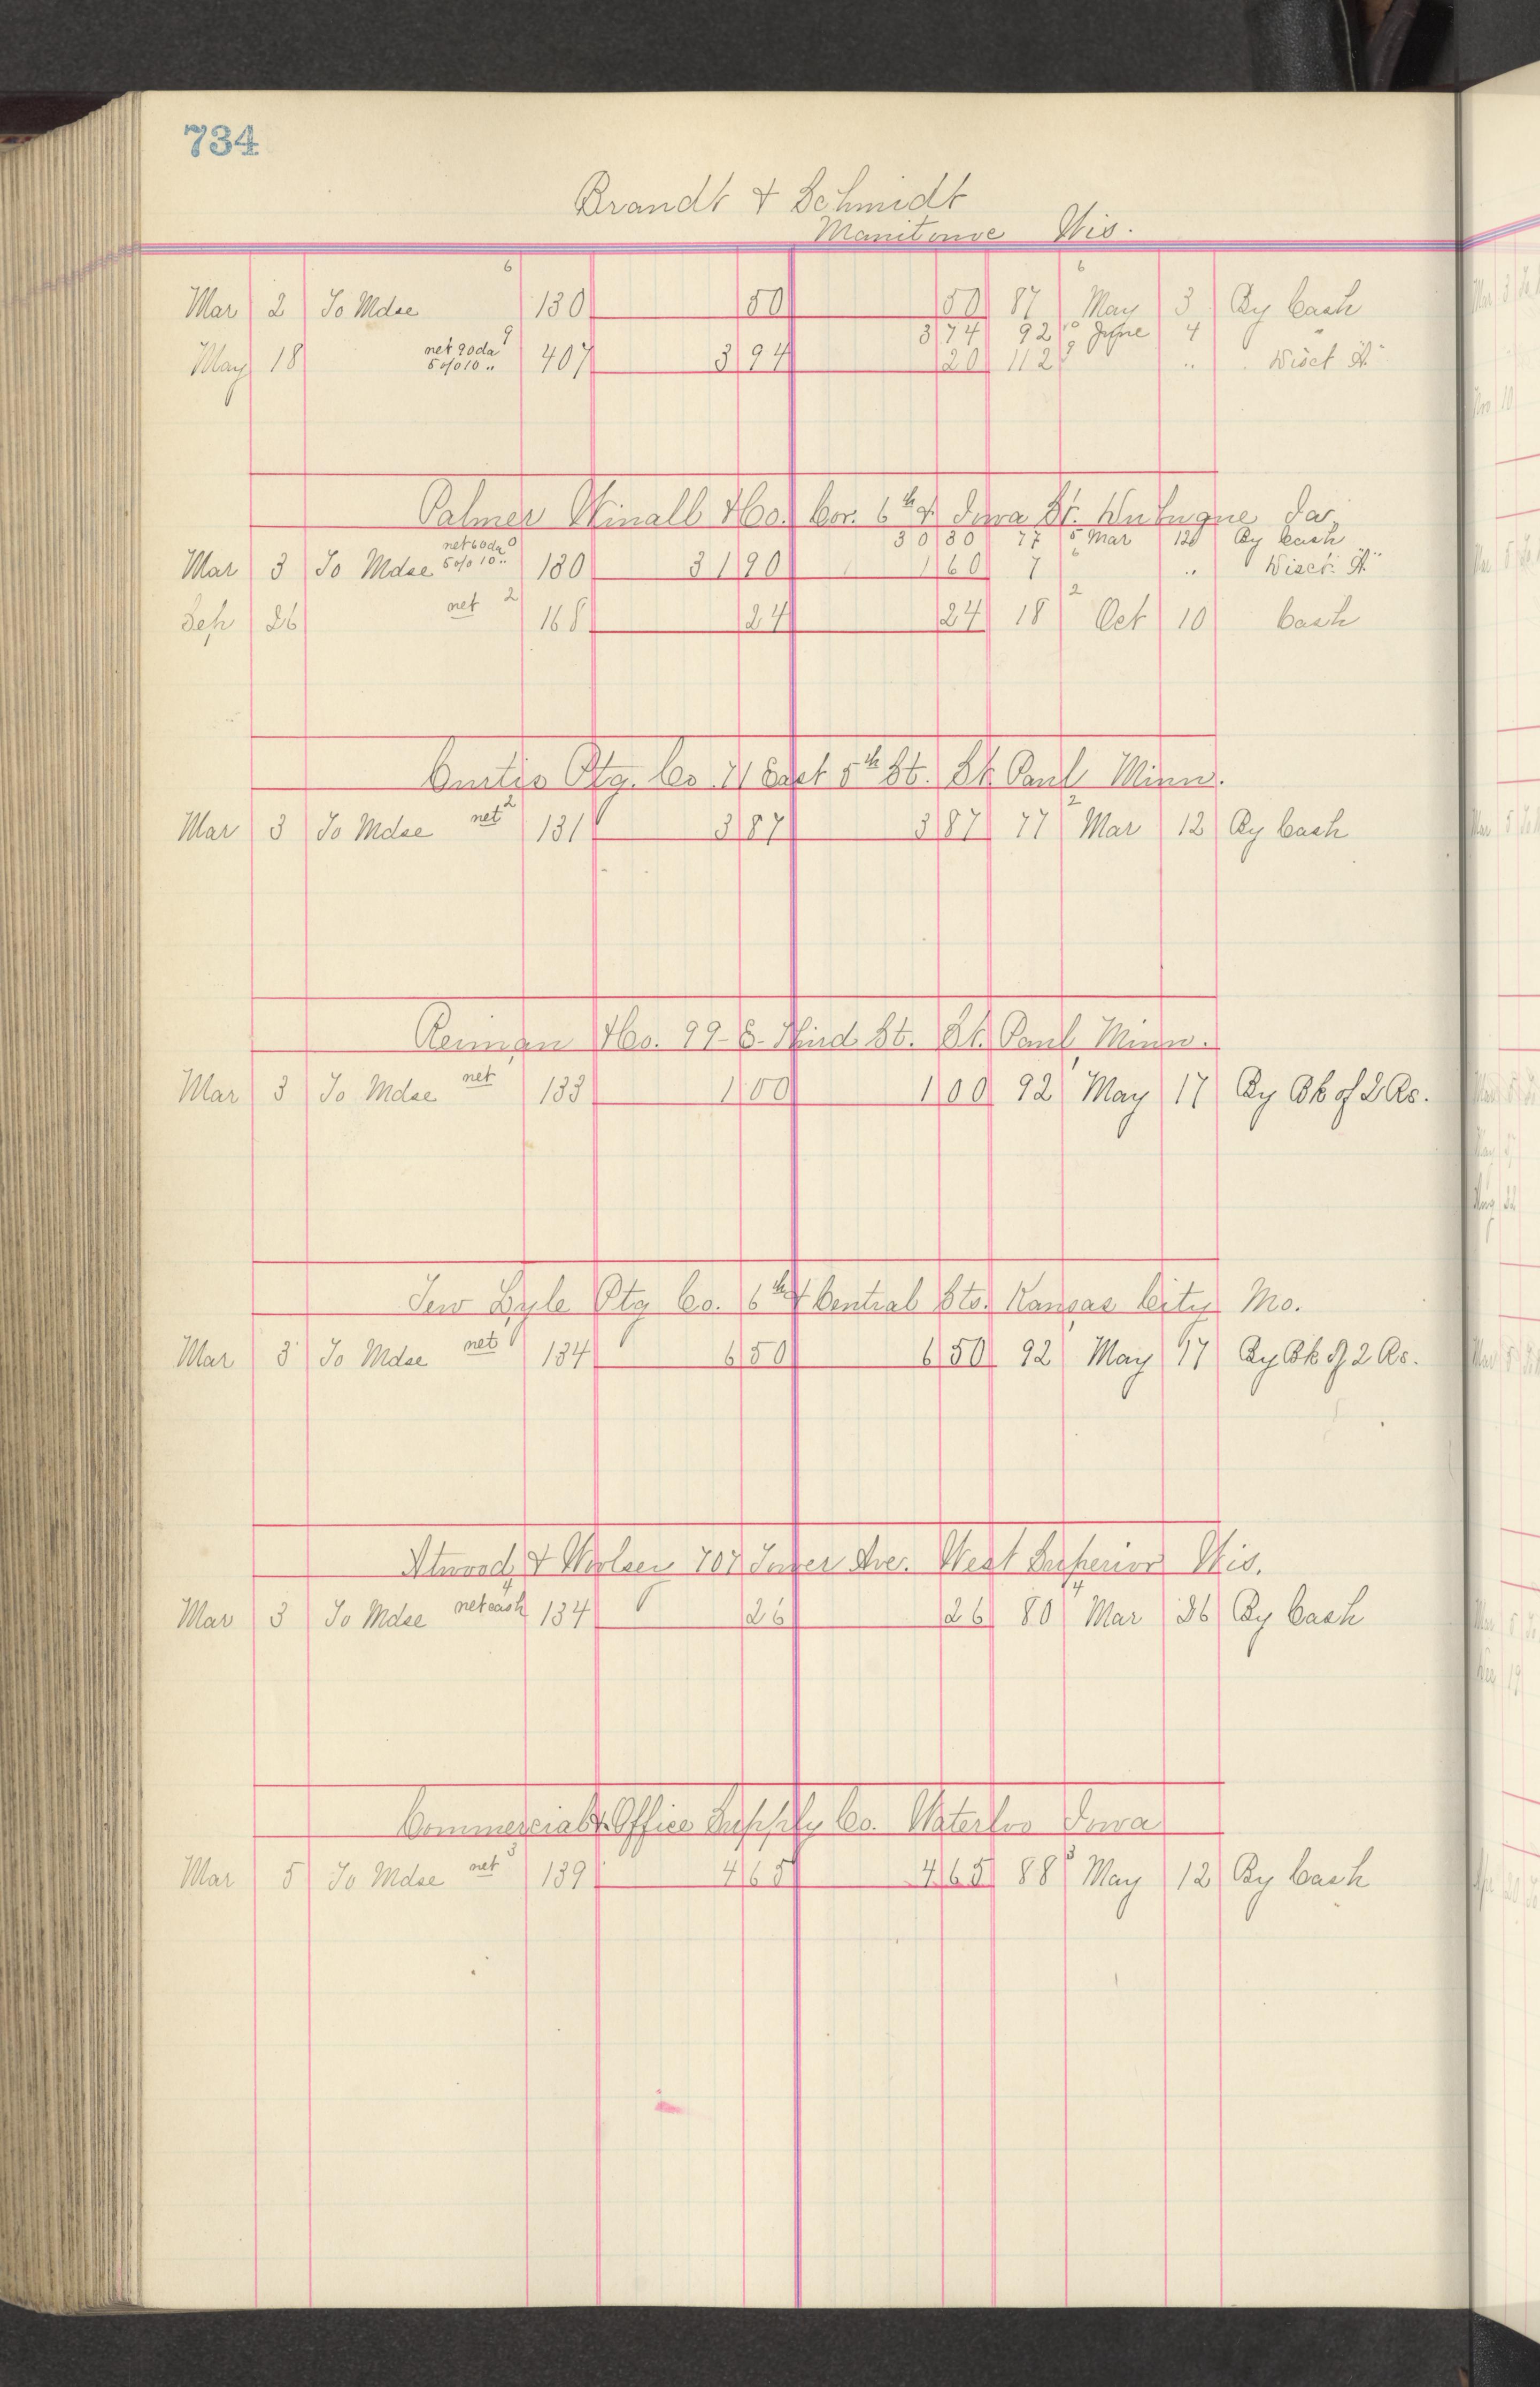 734
Brandt & Schmidt
Manitowoc Wis.
6 6
Mar 2 To Mdse 130 50 50 87 May 3 By Cash
374 92 10 June 4 "
May 18 net 90 da 5 o/o 10 " 9 407 394 20 112 9 " Disct A
Palmer Winall & Co. Cor. 6th & Iowa St. Dubuque Ia.
30 30 77 5 Mar 12 By Cash
Mar 3 To Mdse net 60 da 5 o/o 10 " 130 31 90 1 60 7 6 " Disct. A
Sep 26 net 2 168 24 24 18 2 Oct 10 Cash
Curtis Ptg. Co 71 East 5th St. St. Paul Minn.
Mar 3 To Mdse net 2 131 3 87 3 87 77 2 Mar 12 By Cash
& Co. 99 E. Third St. St. Paul Minn.
Mar 3 To Mdse net 133 1 00 1 00 92 May 17 By Bk of 2 Rs.
Ptg Co. 6th & Central Sts. Kansas City Mo.
Mar 3 To Mdse net 134 6 50 6 50 92 May 17 By Bk of 2 Rs.
Atwood & 707 Tower Ave. West Superior Wis.
Mar 3 To Mdse net cash 134 26 26 80 4 Mar 26 By Cash
Commercial & Office Supply Co. Waterloo Iowa
Mar 5 To Mdse net 3 139 4 65 4 65 88 3 May 12 By Cash